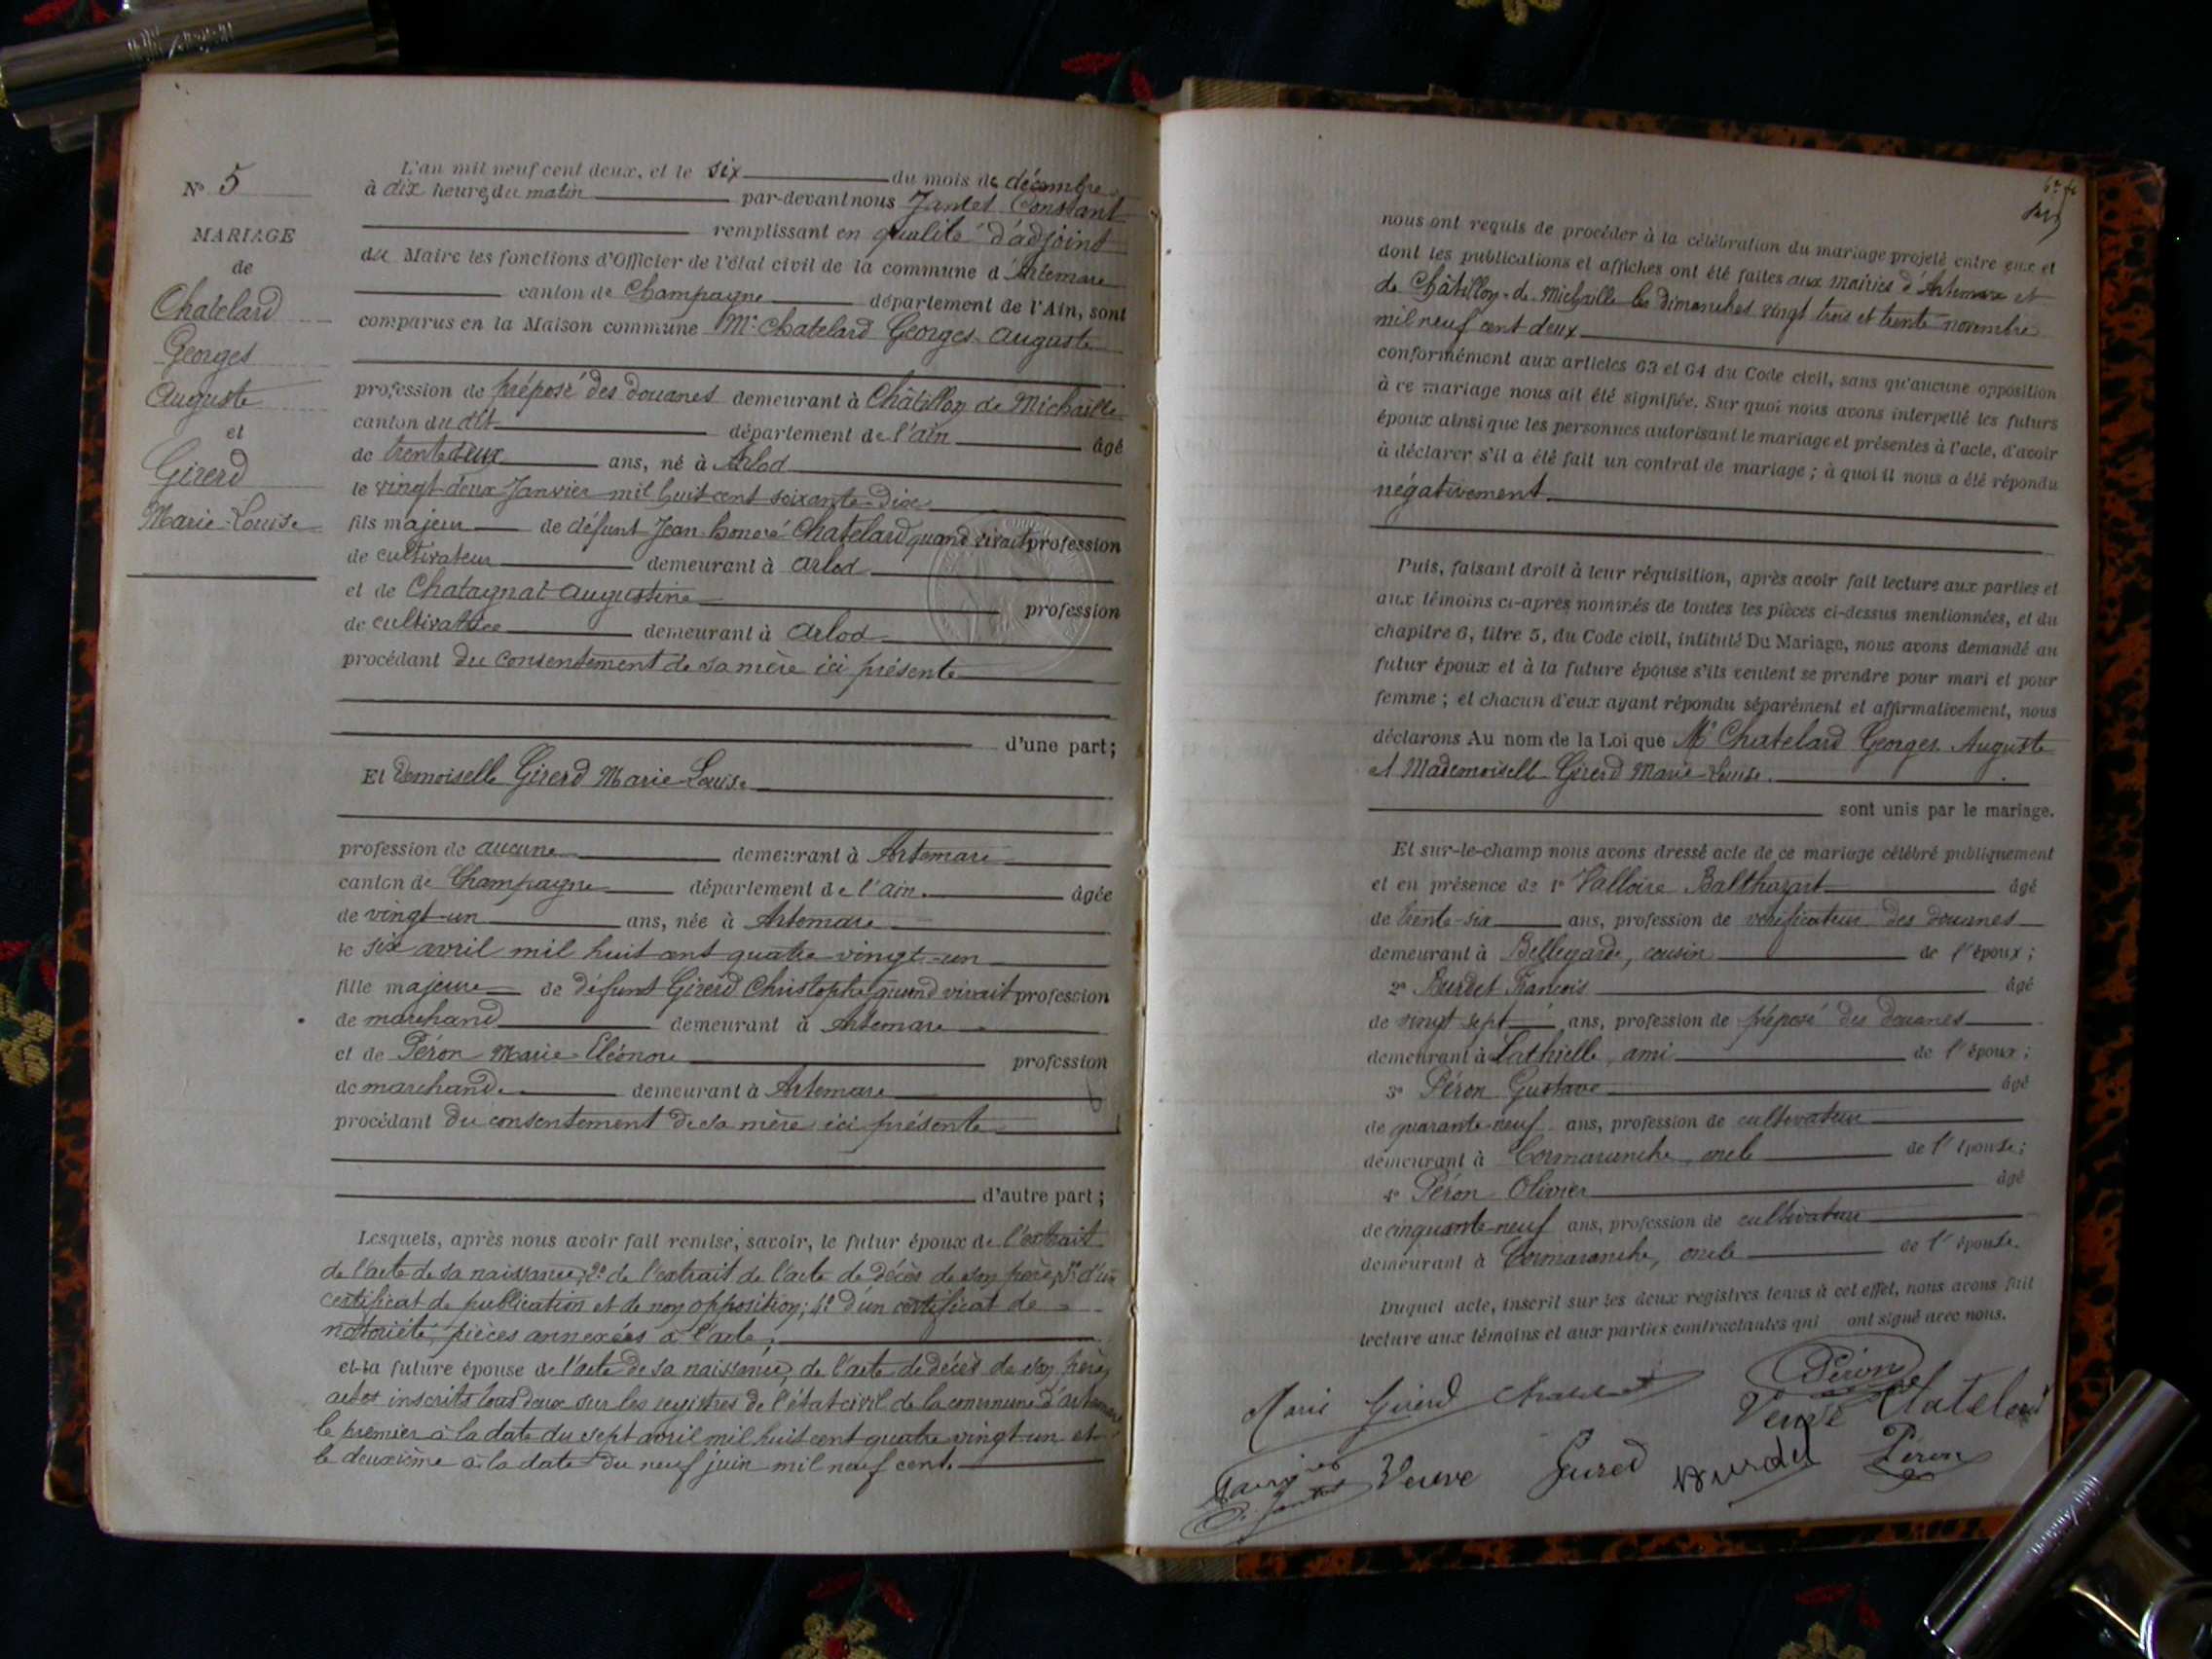 N° 5
MARIAGE
de
Chatelard
Georges
Auguste
et
Girerd
Marie-Louise
L'an mil neuf cent deux, et le six du mois de décembre
à dix heures du matin par-devant nous Jantet Constant
remplissant en qualité d'adjoint
du Maire les fonctions d'Officier de l'état civil de la commune d'Artemare
canton de Champagne département de l'Ain, sont
comparus en la Maison commune Mr Chatelard Georges Auguste
profession de préposé des douanes demeurant à Châtillon de Michaille
canton du dit département de l'ain âgé
de trente deux ans, né à Arlod
le vingt-deux Janvier mil huit cent soixante-dix
fils majeur de défunt Jean honoré Chatelard quand vivait profession
de cultivateur demeurant à Arlod
et de Chatagnat Augustine profession
de cultivatrice demeurant à Arlod
procédant du consentement de sa mère ici présente
d'une part;
Et demoiselle Girerd Marie-Louise
profession de aucune demeurant à Artemare
canton de Champagne département de l'ain. âgée
de vingt-un ans, née à Artemare
le six avril mil huit cent quatre-vingt-un
fille majeure de défunt Girerd Christophe quand vivait profession
de marchand demeurant à Artemare
et de Péron Marie Eléonore profession
de marchande demeurant à Artemare
procédant du consentement de sa mère ici présente
d'autre part;
Lesquels, après nous avoir fait remise, savoir, le futur époux de l'extrait
de l'acte de sa naissance; 2° de l'extrait de l'acte de décès de son père; 3° d'un
certificat de publication et de non opposition; 4° d'un certificat de
notoriété, pièces annexées à l'acte;
et la future épouse de l'acte de sa naissance, de l'acte de décès de son père,
actes inscrits tous deux sur les registres de l'état-civil de la commune d'artemare
le premier à la date du sept avril mil huit cent quatre vingt-un et
le deuxième à la date du neuf juin mil neuf cent.
nous ont requis de procéder à la célébration du mariage projeté entre eux et
dont les publications et affiches ont été faites aux mairies d'Artemare et
de Châtillon-de-Michaille les dimanches vingt trois et trente novembre
mil neuf cent deux
conformément aux articles 63 et 64 du Code civil, sans qu'aucune opposition
à ce mariage nous ait été signifiée. Sur quoi nous avons interpellé les futurs
époux ainsi que les personnes autorisant le mariage et présentes à l'acte, d'avoir
à déclarer s'il a été fait un contrat de mariage; à quoi il nous a été répondu
négativement.
Puis, faisant droit à leur réquisition, après avoir fait lecture aux parties et
aux témoins ci-après nommés de toutes les pièces ci-dessus mentionnées, et du
chapitre 6, titre 5, du Code civil, intitulé Du Mariage, nous avons demandé au
futur époux et à la future épouse s'ils veulent se prendre pour mari et pour
femme; et chacun d'eux ayant répondu séparément et affirmativement, nous
déclarons Au nom de la Loi que Mr Chatelard Georges Auguste
et Mademoiselle Girerd Marie-Louise.
sont unis par le mariage.
Et sur-le-champ nous avons dressé acte de ce mariage célébré publiquement
et en présence de 1° Valloire Balthazart âgé
de trente-six ans, profession de vérificateur des douanes
demeurant à Bellegarde, cousin de l'époux;
2° Burdet François âgé
de vingt sept ans, profession de préposé des douanes
demeurant à Lathuille ami de l'époux;
3° Péron Gustave âgé
de quarante-neuf ans, profession de cultivateur
demeurant à Cormaranche, oncle de l'épouse;
4° Péron Olivier âgé
de cinquante-neuf ans, profession de cultivateur
demeurant à Cormaranche, oncle de l'épouse.
Duquel acte, inscrit sur les deux registres tenus à cet effet, nous avons fait
lecture aux témoins et aux parties contractantes qui ont signé avec nous.
Péron
Marie Girerd Chatelard Veuve Chatelard
Veuve Girerd Burdet Péron
C. Jantet